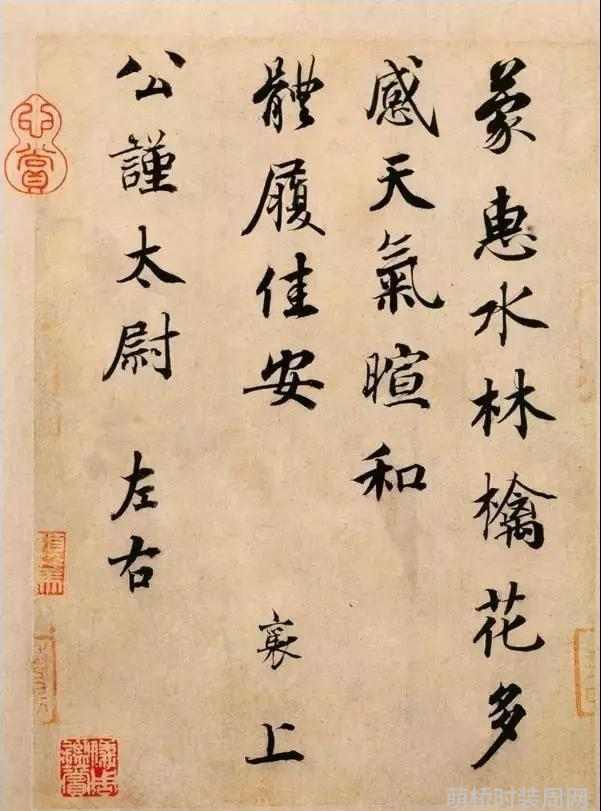 蒙惠水林檎花多
感天氣暄和
體履佳安 襄上
公謹太尉 左右
萌桥时装周网